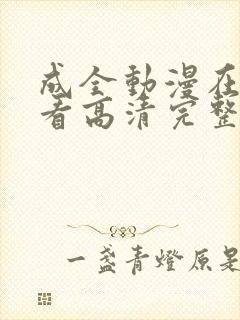 成全動漫在
看高清完整
一盏青燈原是